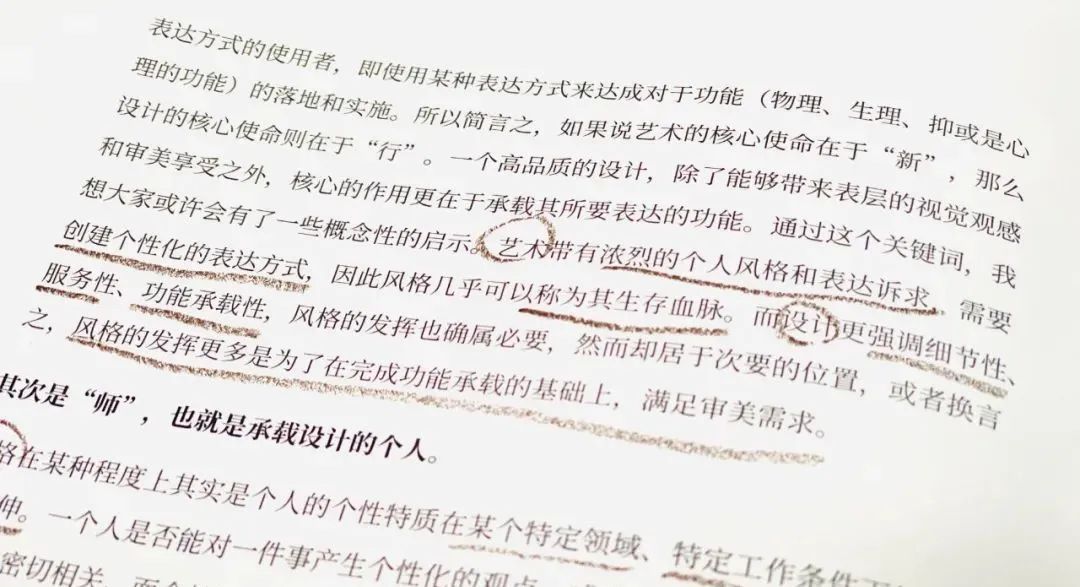 表达方式的使用者，即使用某种表达方式来达成对于功能（物理、生理、抑或是心
理的功能）的落地和实施。所以简言之，如果说艺术的核心使命在于“新”，那么
设计的核心使命则在于“行”。一个高品质的设计，除了能够带来表层的视觉观感
和审美享受之外，核心的作用更在于承载其所要表达的功能。通过这个关键词，我
想大家或许会有了一些概念性的启示。艺术带有浓烈的个人风格和表达诉求，需要
创建个性化的表达方式，因此风格几乎可以称为其生存血脉。而设计更强调细节性、
服务性、功能承载性，风格的发挥也确属必要，然而却居于次要的位置，或者换言
之，风格的发挥更多是为了在完成功能承载的基础上，满足审美需求。
其次是“师”，也就是承载设计的个人。
格在某种程度上其实是个人的个性特质在某个特定领域、特定工作条件
伸。一个人是否能对一件事产生个性化的观点
密切相关